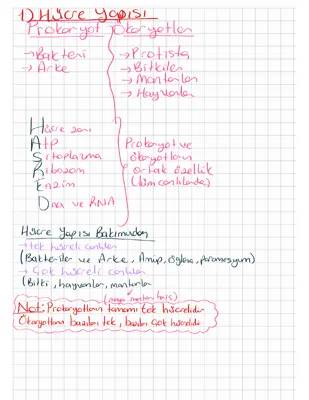 1) Hücre Yapısı
Prokaryot Ökaryotlar
→Bakteri
→Arke
→Protista
→Bitkiler
→Mantarlar
→Hayvanlar
Hücre zarı
ATP
Sitoplazma
Ribozom
Enzim
Dna ve RNA
Prokaryot ve
ökaryotların
ortak özellik
(tüm canlılarda)
Hücre Yapısı Bakımından
→ tek hücreli canlılar
(Bakteriler ve Arke, Amip, öglena, Paramesyum)
→ Çok hücreli canlılar
(Bitki, hayvanlar, mantarlar
(maya mantarı hariç)
Not: Prokaryotların tamamı tek hücrelidir
Ökaryotların bazıları tek, bazıları çok hücrelidir